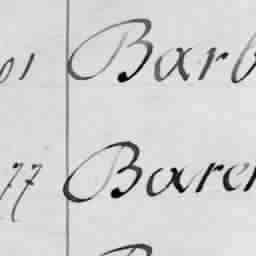 01 Barb
77 Baren